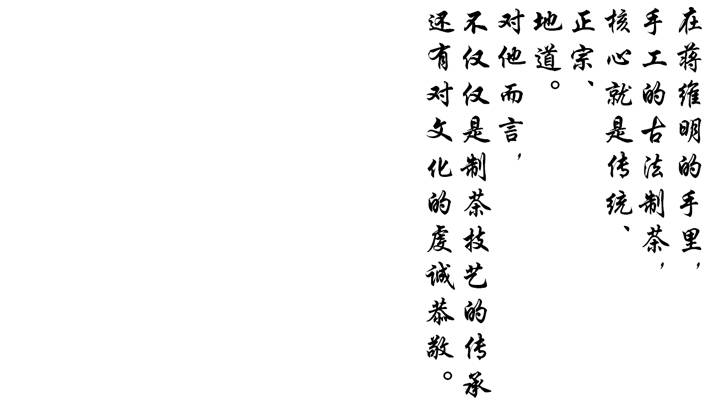 在蒋维明的手里，
手工的古法制茶，
核心就是传统、
正宗、
地道。
对他而言，
不仅仅是制茶技艺的传承
还有对文化的虔诚恭敬。